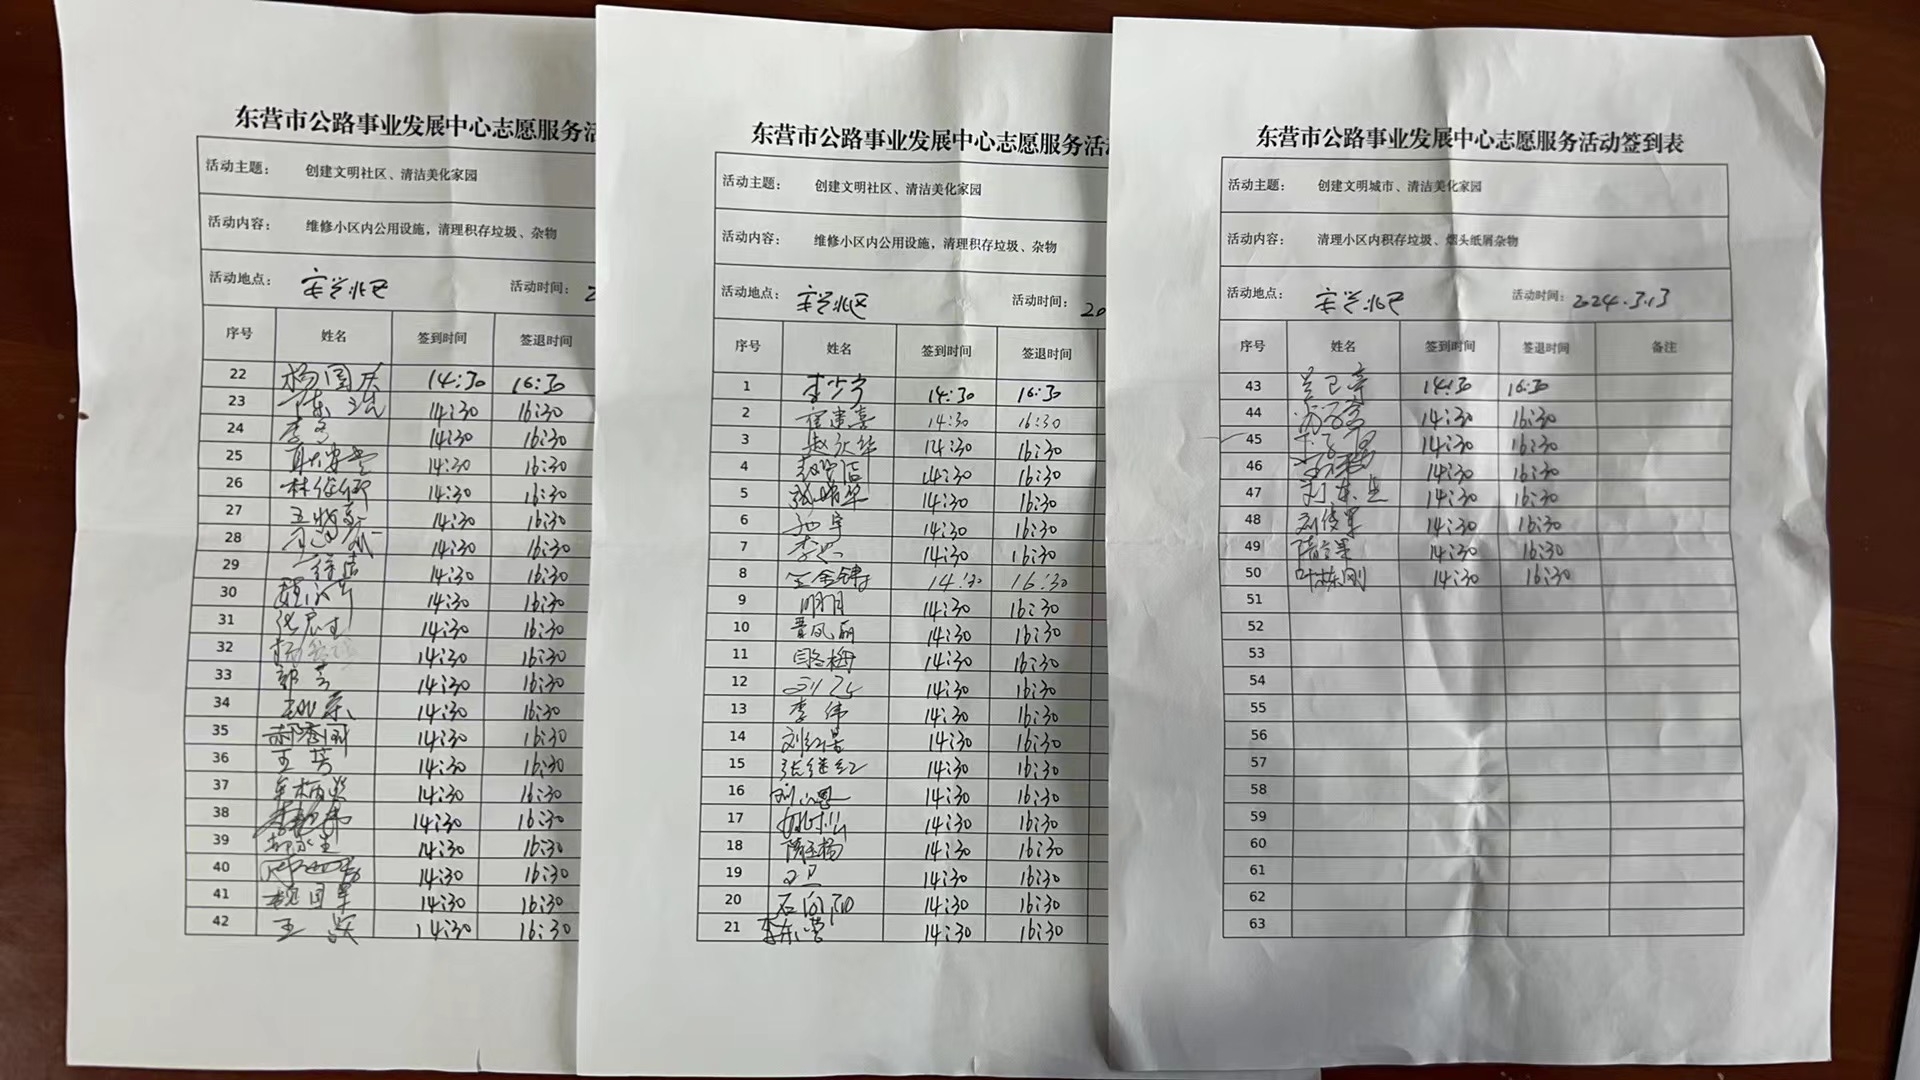 东营市公路事业发展中心志愿服务活
活动主题： 创建文明社区、清洁美化家园
活动内容： 维修小区内公用设施，清理积存垃圾、杂物
活动地点： 安兴北区 活动时间： 2
序号 姓名 签到时间 签退时间
22 杨国庆 14:30 16:30
23 陈 14:30 16:30
24 李 14:30 16:30
25 14:30 16:30
26 林 14:30 16:30
27 王 14:30 16:30
28 14:30 16:30
29 14:30 16:30
30 14:30 16:30
31 张 14:30 16:30
32 杨 14:30 16:30
33 郭芳 14:30 16:30
34 14:30 16:30
35 14:30 16:30
36 王芳 14:30 16:30
37 14:30 16:30
38 李 14:30 16:30
39 14:30 16:30
40 14:30 16:30
41 国军 14:30 16:30
42 王跃 14:30 16:30
东营市公路事业发展中心志愿服务活
活动主题： 创建文明社区、清洁美化家园
活动内容： 维修小区内公用设施，清理积存垃圾、杂物
活动地点： 安兴北区 活动时间： 20
序号 姓名 签到时间 签退时间
1 李少宁 14:30 16:30
2 崔建喜 14:30 16:30
3 赵 14:30 16:30
4 14:30 16:30
5 14:30 16:30
6 宇 14:30 16:30
7 李 14:30 16:30
8 王金锋 14:30 16:30
9 明月 14:30 16:30
10 凤丽 14:30 16:30
11 闫冬梅 14:30 16:30
12 刘 14:30 16:30
13 李伟 14:30 16:30
14 刘红 14:30 16:30
15 张继红 14:30 16:30
16 刘 恩 14:30 16:30
17 姚 14:30 16:30
18 隋玉梅 14:30 16:30
19 卫 14:30 16:30
20 石向阳 14:30 16:30
21 李东营 14:30 16:30
东营市公路事业发展中心志愿服务活动签到表
活动主题： 创建文明城市、清洁美化家园
活动内容： 清理小区内积存垃圾、烟头纸屑杂物
活动地点： 安兴北区 活动时间： 2024.3.13
序号 姓名 签到时间 签退时间 备注
43 14:30 16:30
44 14:30 16:30
45 14:30 16:30
46 14:30 16:30
47 刘东 14:30 16:30
48 刘俊军 14:30 16:30
49 隋 14:30 16:30
50 叶栋刚 14:30 16:30
51
52
53
54
55
56
57
58
59
60
61
62
63